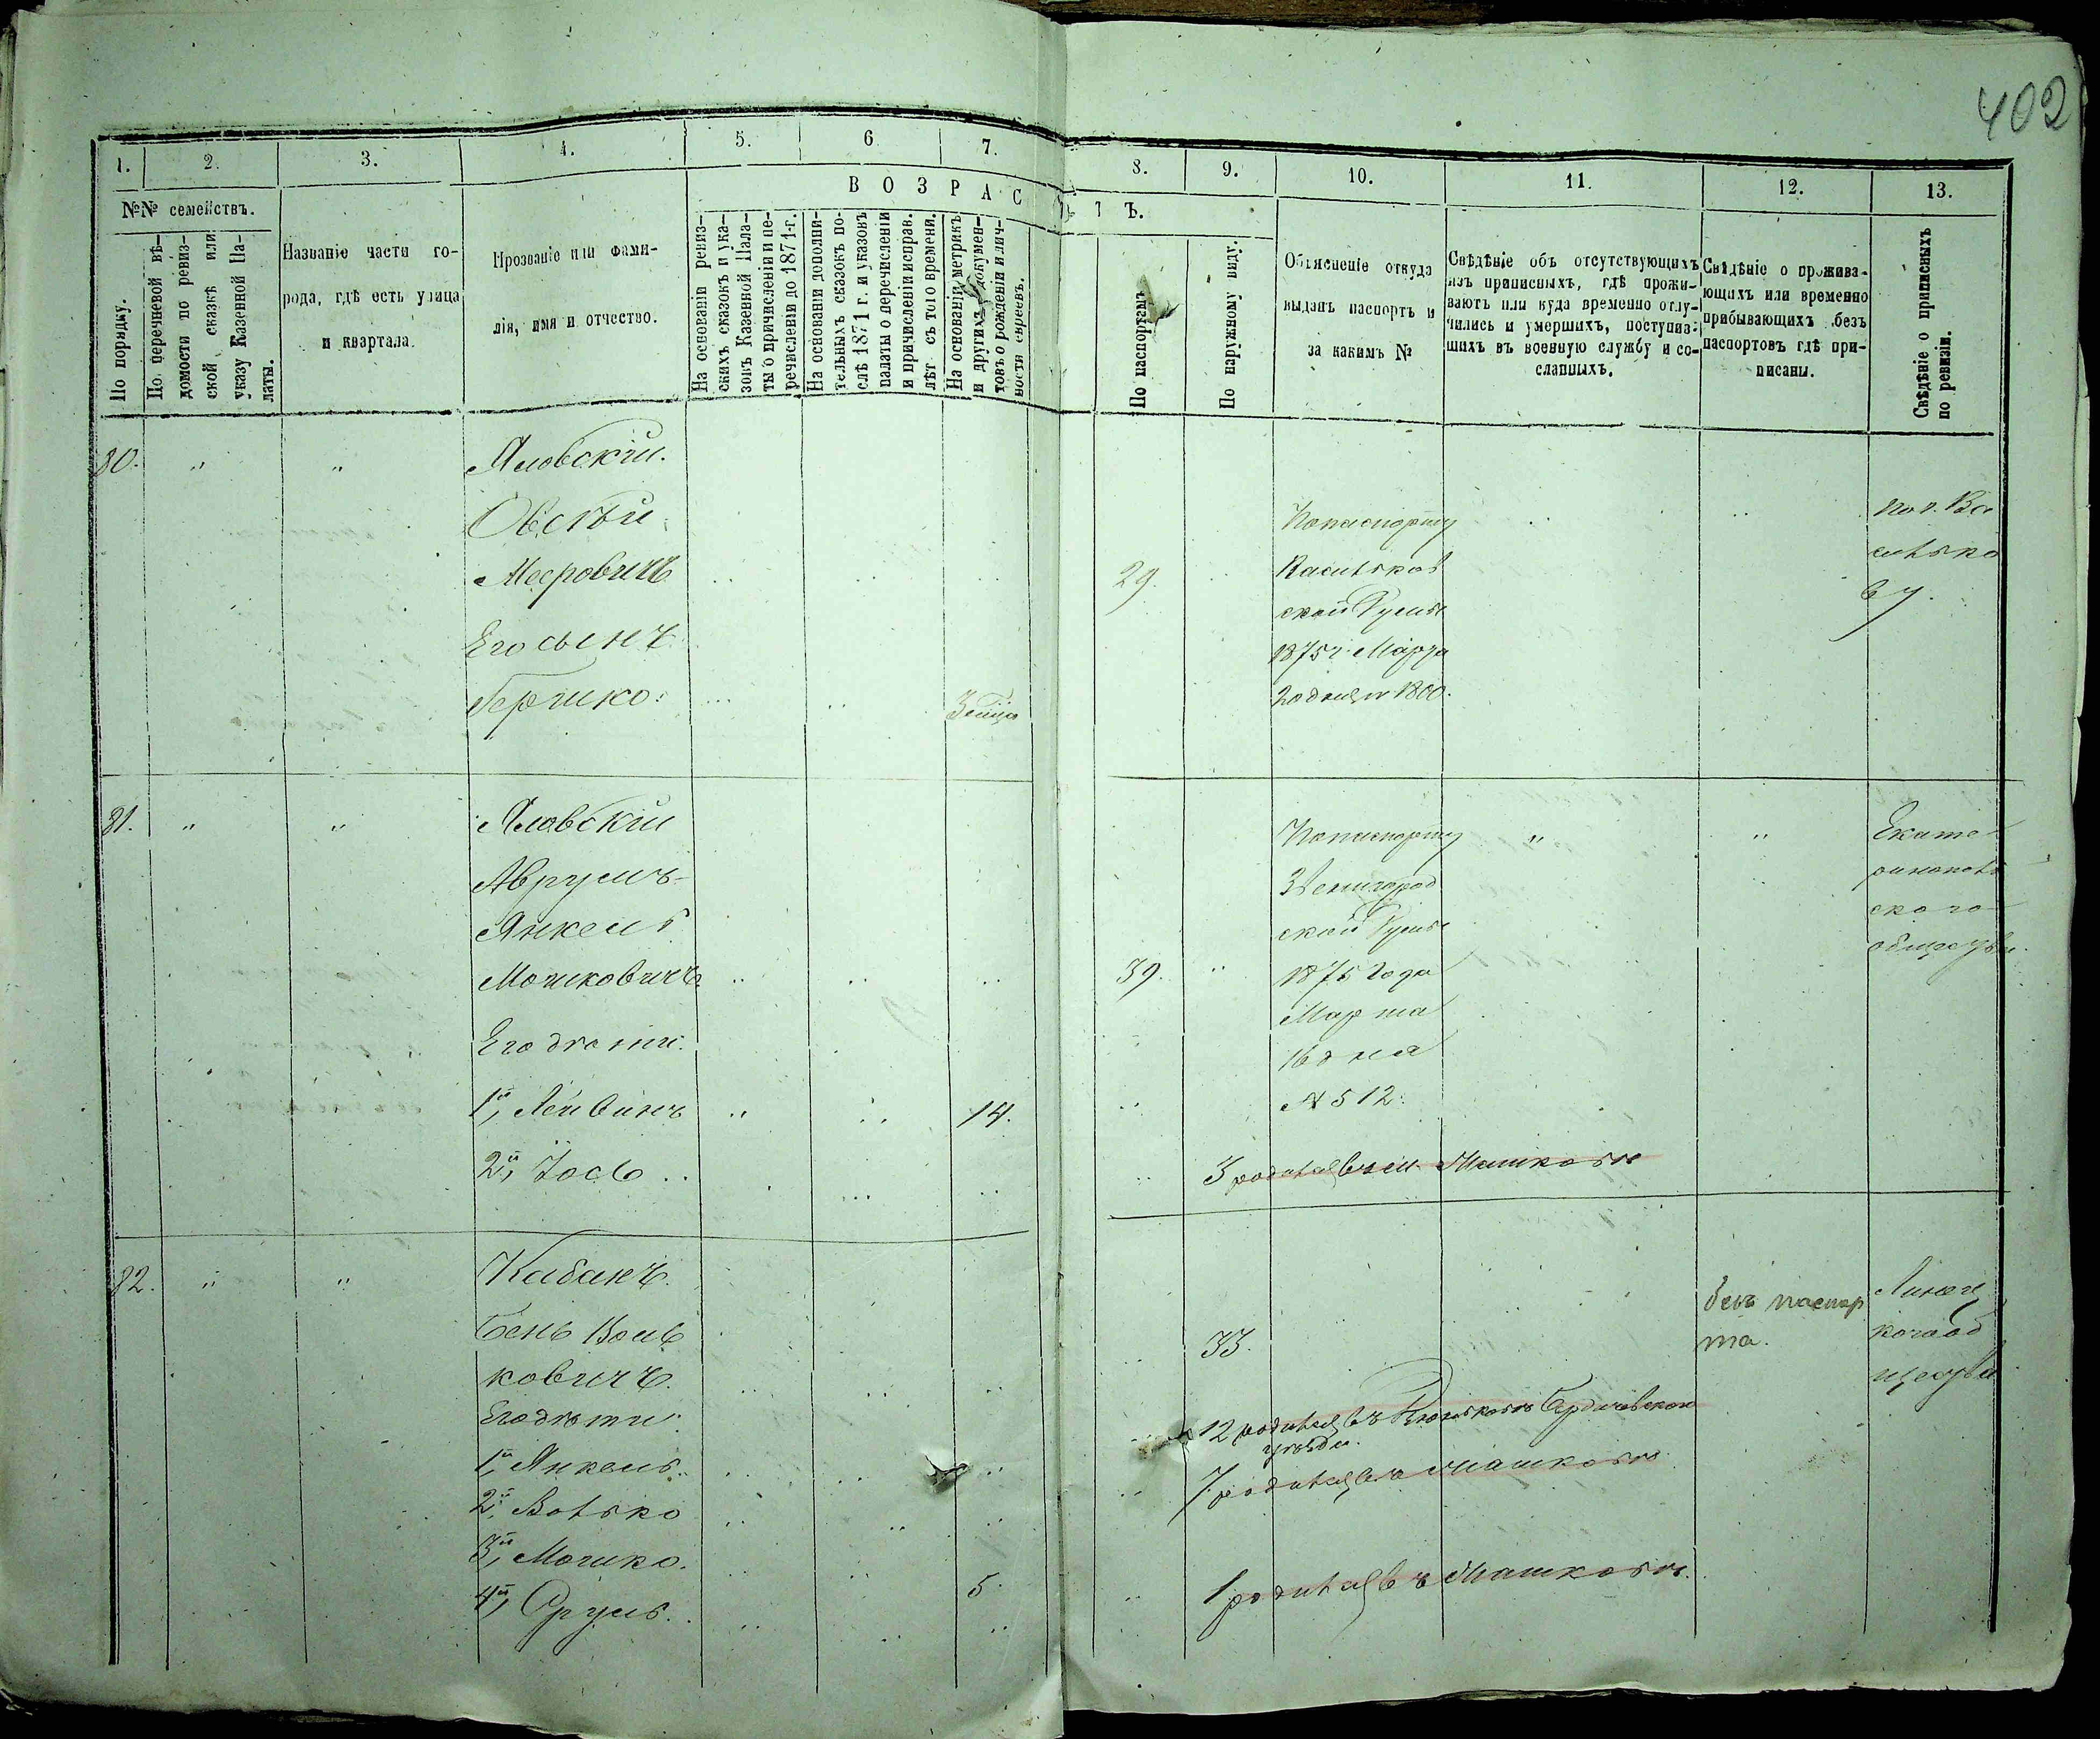 402
1.
2.
3.
4.
5.
6
7.
8.
9.
10.
11.
12.
13.
№№ семействъ.
ВОЗРАС
ТЪ.
По порядку.
По перечневой вѣ-
домости по ревиз-
ской сказкѣ или
указу Казенной Па-
латы.
Названіе части го-
рода, гдѣ есть улица
и квартала.
Прозваніе или фами-
лія, имя и отчество.
На основаніи ревиз-
скихъ сказокъ и ука-
зовъ Казенной Пала-
ты о причисленіи и пе-
речисленіи до 1871 г.
На основаніи дополни-
тельныхъ сказокъ по-
слѣ 1871 г. и указовъ
палаты о перечисленіи
и причисленіи исправ.
лѣт съ того времени.
На основаніи метрикъ
и другихъ докумен-
товъ о рожденіи и лич-
ности евреевъ.
По паспортамъ
По наружному виду.
Объясненіе откуда
выданъ паспортъ и
за какимъ №
Свѣдѣніе объ отсутствующихъ
изъ приписныхъ, гдѣ прожи-
ваютъ или куда временно отлу-
чились и умершихъ, поступив-
шихъ въ военную службу и со-
сланныхъ.
Свѣдѣніе о прожива-
ющихъ или временно
прибывающихъ безъ
паспортовъ гдѣ при-
писаны.
Свѣдѣніе о приписныхъ
по ревизіи.
80. " " Яловскій.
Овсѣй
Меєровичъ 29.
Его сынъ
Гершко. 3
Попаспорту
Васильков
ской Думы
1875 г. Марта
2 о дня № 1800.
по г. Ва
силько
ву.
81. " " Яловскій
Аврумъ-
Янкель
Мошковичъ 39. "
Его дѣти:
1й, Лейвинъ 14.
2й, Іось
Попаспорту " "
Звенигород
ской Думы
1875 Года
Марта
16 дня
№ 512.
3 родился въ м. Машковѣ
Екате
ринопол
ского
общества.
82. " " Кабанъ.
Бень Воль
ковичъ. 33.
Его дѣти:
1й, Янкель. 12 родился въ Бердичевском
уѣзде.
2й, Волько 7 родился въ Машковѣ
3й, Мошко. 5.
4й, Сруль. 1 родился въ Машковѣ.
безъ паспор
та.
кого об
щества